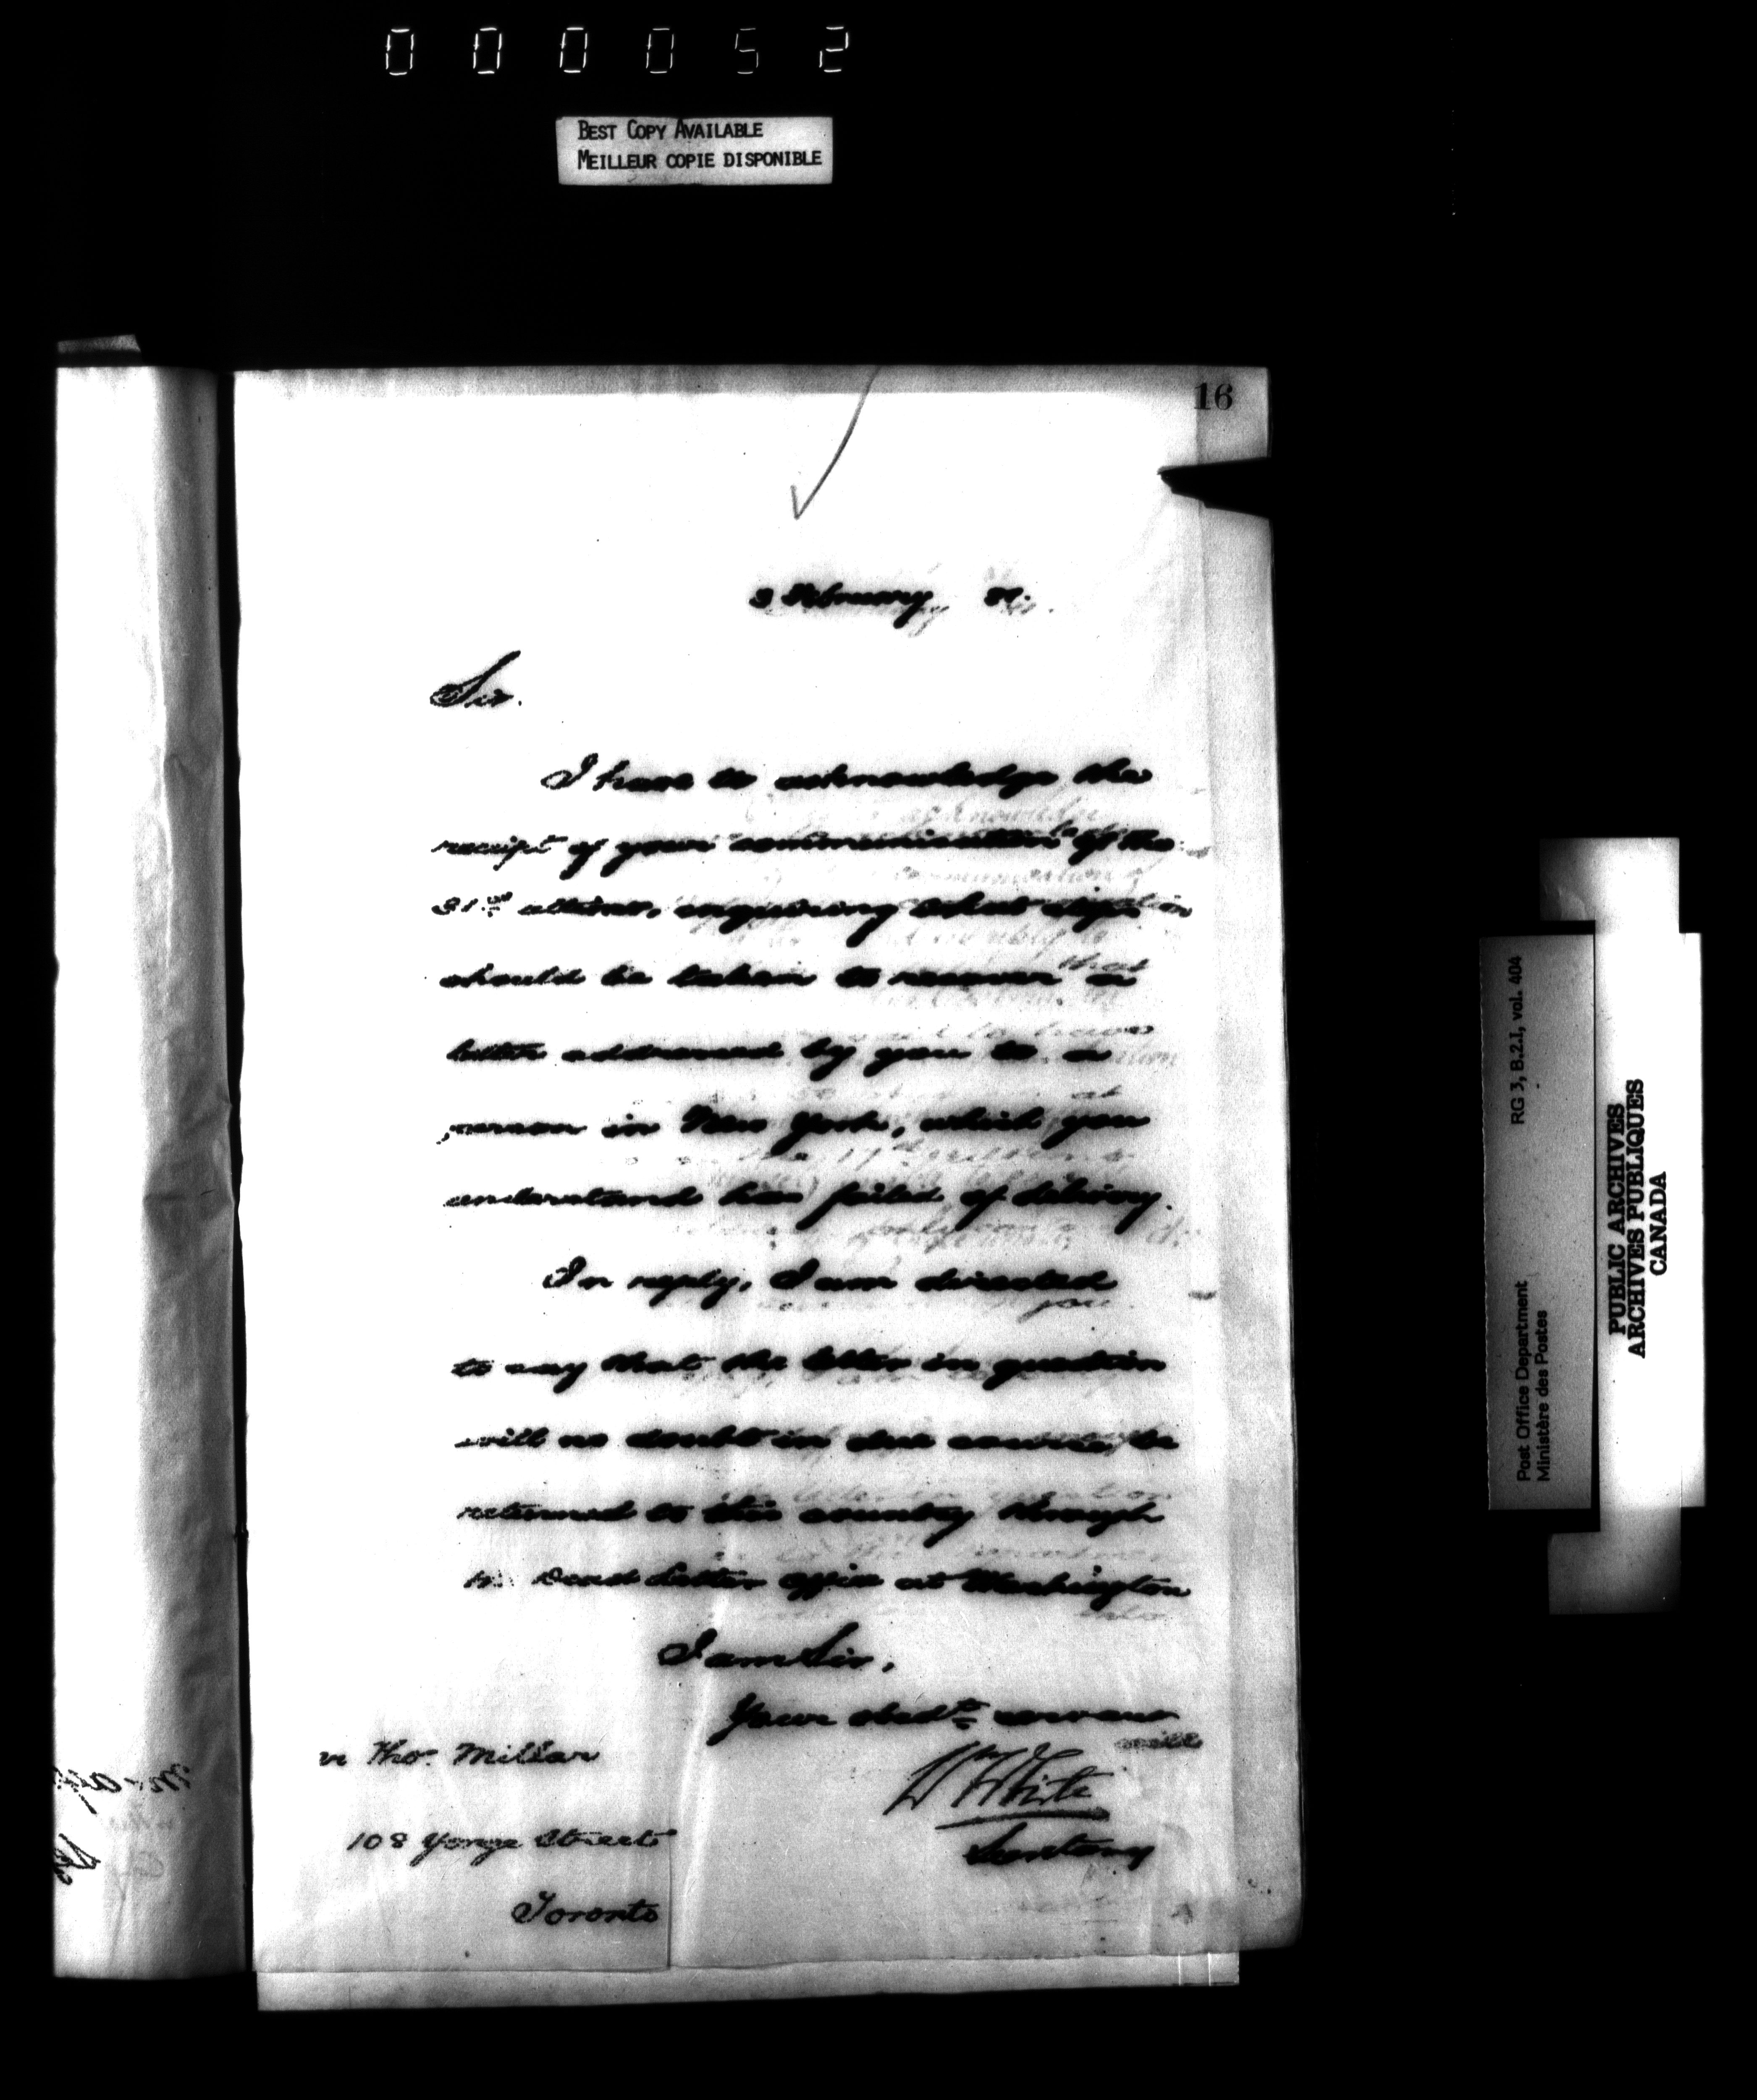 000052
BEST COPY AVAILABLE
MEILLEUR COPIE DISPONIBLE
16
3 February
Sir.
I have to acknowledge the
receipt of your communication of the
31st ultimo, enquiring what steps
should be taken to recover a
letter addressed by you to a
person in New York, which you
understand has failed of delivery.
In reply, I am directed
to say that the letter in question
will no doubt in due course, be
returned to this country through
Dead Letter Office at Washington
I am Sir,
Your obedt. servant
W White
Secretary
Thos. Millar
108 Yonge Street
Toronto
Post Office Department
Ministère des Postes
RG 3, B.2.1, vol. 404
PUBLIC ARCHIVES
ARCHIVES PUBLIQUES
CANADA